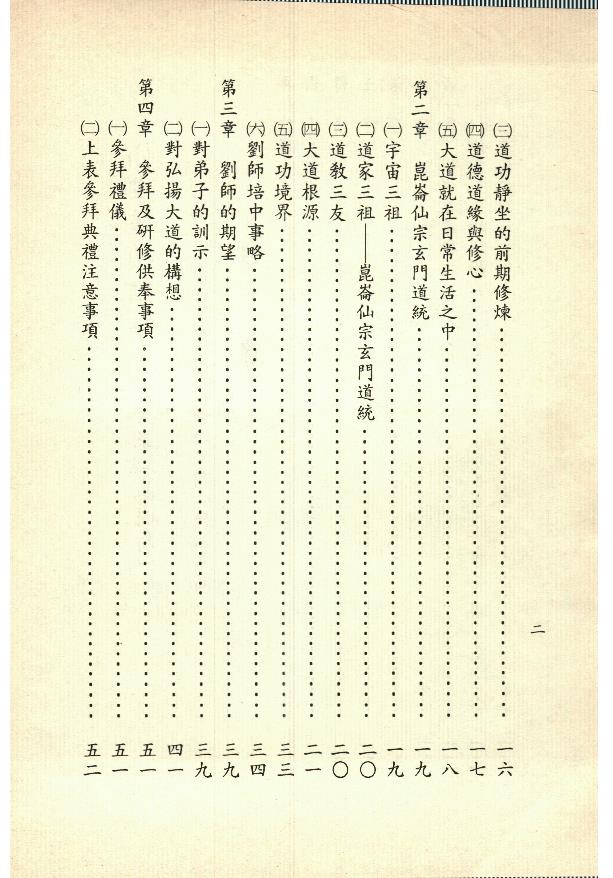 ㈢道功靜坐的前期修煉⋯⋯⋯⋯⋯⋯⋯⋯⋯⋯一六
㈣道德道緣與修心⋯⋯⋯⋯⋯⋯⋯⋯⋯⋯一七
㈤大道就在日常生活之中⋯⋯⋯⋯⋯⋯⋯⋯⋯⋯一八
第二章 崑崙仙宗玄門道統⋯⋯⋯⋯⋯⋯⋯⋯⋯⋯一九
㈠宇宙三祖⋯⋯⋯⋯⋯⋯⋯⋯⋯⋯一九
㈡道家三祖——崑崙仙宗玄門道統⋯⋯⋯⋯⋯⋯⋯⋯二〇
㈢道教三友⋯⋯⋯⋯⋯⋯⋯⋯⋯⋯二〇
㈣大道根源⋯⋯⋯⋯⋯⋯⋯⋯⋯⋯二一
㈤道功境界⋯⋯⋯⋯⋯⋯⋯⋯⋯⋯三三
㈥劉師培中事略⋯⋯⋯⋯⋯⋯⋯⋯⋯⋯三四
第三章 劉師的期望⋯⋯⋯⋯⋯⋯⋯⋯⋯⋯三九
㈠對弟子的訓示⋯⋯⋯⋯⋯⋯⋯⋯⋯⋯三九
㈡對弘揚大道的構想⋯⋯⋯⋯⋯⋯⋯⋯⋯⋯四一
第四章 參拜及研修供奉事項⋯⋯⋯⋯⋯⋯⋯⋯⋯⋯五一
㈠參拜禮儀⋯⋯⋯⋯⋯⋯⋯⋯⋯⋯五一
㈡上表參拜典禮注意事項⋯⋯⋯⋯⋯⋯⋯⋯⋯⋯五二
二